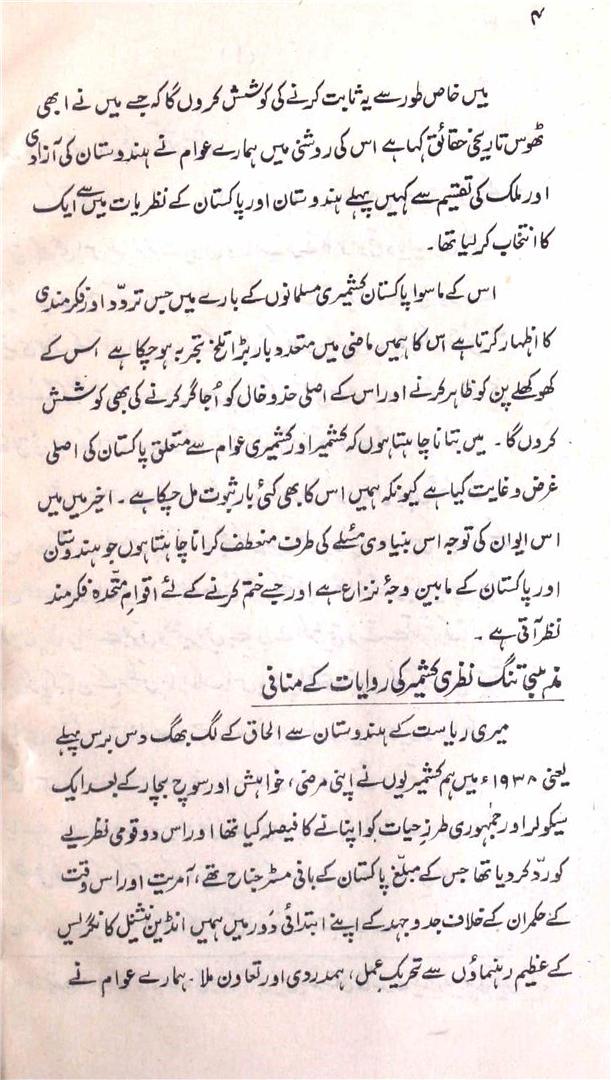 ۴
میں خاص طور سے یہ ثابت کرنے کی کوشش کروں گا کہ جسے میں نے ابھی
ٹھوس تاریخی حقائق کہا ہے اس کی روشنی میں ہمارے عوام نے ہندوستان کی آزادی
اور ملک کی تقسیم سے کہیں پہلے ہندوستان اور پاکستان کے نظریات میں سے ایک
کا انتخاب کر لیا تھا۔
اس کے ماسوا پاکستان کشمیری مسلمانوں کے بارے میں جس تردّد اور فکرمندی
کا اظہار کرتا ہے اس کا ہمیں ماضی میں متعدد بار بڑا تلخ تجربہ ہو چکا ہے اس کے
کھوکھلے پن کو ظاہر کرنے اور اس کے اصلی خدوخال کو اُجاگر کرنے کی بھی کوشش
کروں گا۔ میں بتانا چاہتا ہوں کہ کشمیر اور کشمیری عوام سے متعلق پاکستان کی اصلی
غرض و غایت کیا ہے کیونکہ ہمیں اس کا بھی کئی بار ثبوت مل چکا ہے۔ اخیر میں میں
اس ایوان کی توجہ اس بنیادی مسئلے کی طرف منعطف کرانا چاہتا ہوں جو ہندوستان
اور پاکستان کے مابین وجۂ نزاع ہے اور جسے ختم کرنے کے لئے اقوامِ متّحدہ فکرمند
نظر آتی ہے۔
مذہبی تنگ نظری کشمیر کی روایات کے منافی
میری ریاست کے ہندوستان سے الحاق کے لگ بھگ دس برس پہلے
یعنی ۱۹۳۸ء میں ہم کشمیریوں نے اپنی مرضی، خواہش اور سوچ بچار کے بعد ایک
سیکولر اور جمہوری طرزِ حیات کو اپنانے کا فیصلہ کیا تھا اور اس دو قومی نظریے
کو ردّ کر دیا تھا جس کے مبلّغ پاکستان کے بانی مسٹر جناح تھے، آمریت اور اس وقت
کے حکمران کے خلاف جدوجہد کے اپنے ابتدائی دَور میں ہمیں انڈین نیشنل کانگریس
کے عظیم رہنماؤں سے تحریکِ عمل، ہمدردی اور تعاون ملا۔ ہمارے عوام نے